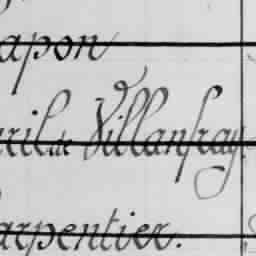 apon
ril de Villanfray.
arpentier.